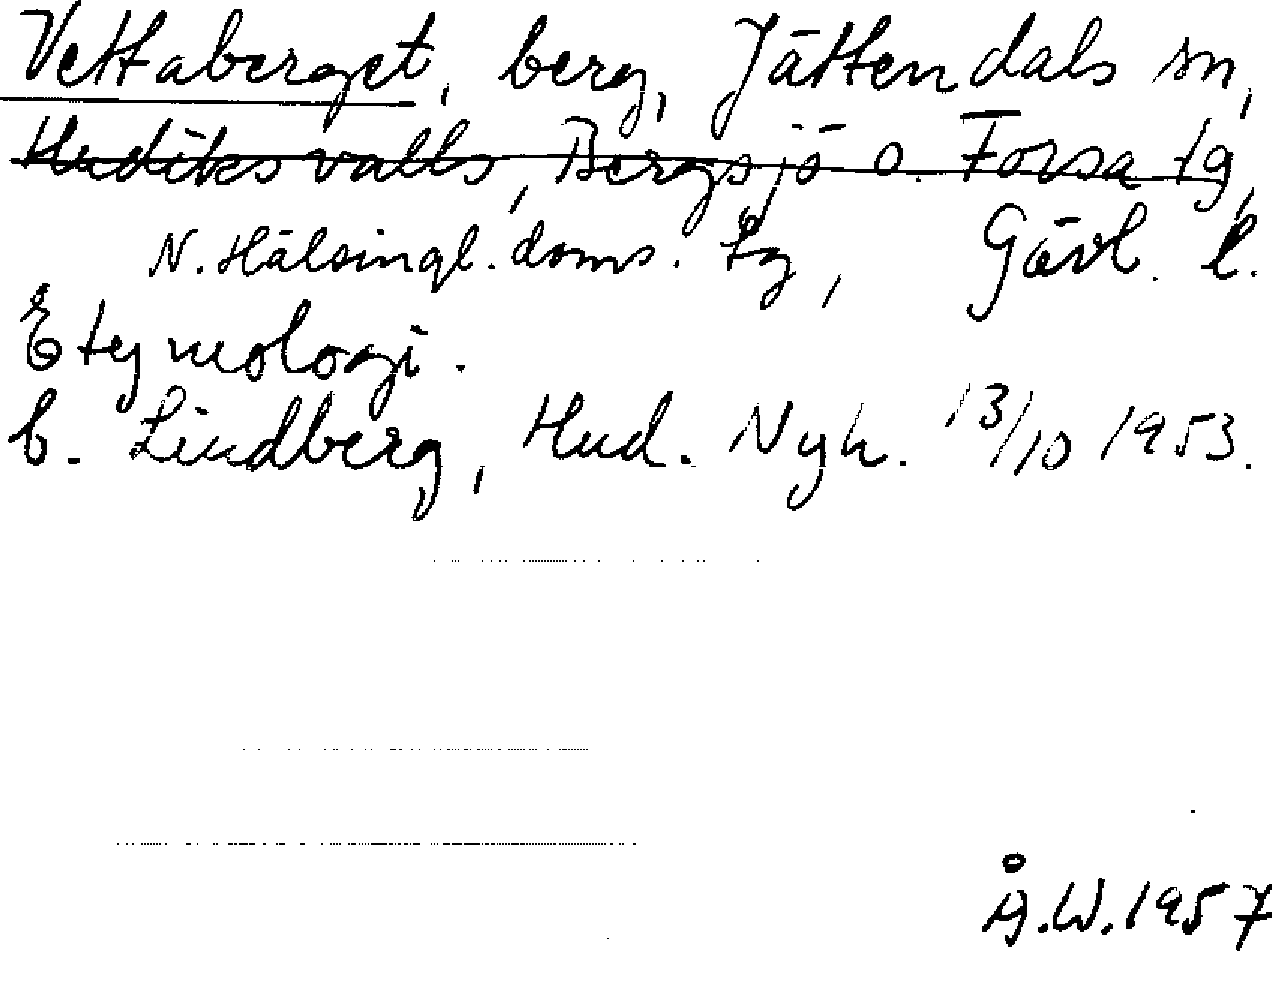 Vettaberget, berg, Jättendals sn,
Hudiksvalls, Bergsjö o. Forsa tg,
N. Hälsingl. doms. tg, Gävl. l.
Etymologi.
b. Lindberg, Hud. Nyh. 13/10 1953.
Å.W. 1957